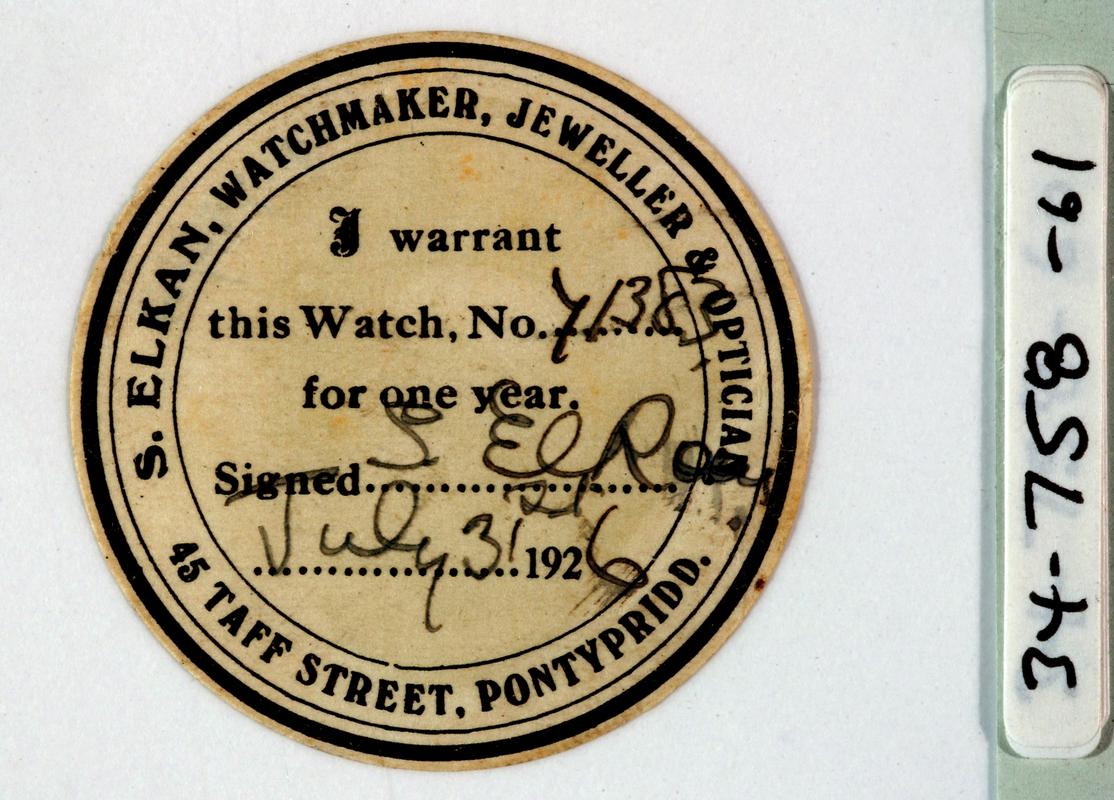 S. ELKAN, WATCHMAKER, JEWELLER & OPTICIAN
I warrant
this Watch, No. 41383
for one year.
Signed S Elkan
July 31st 1926
45 TAFF STREET, PONTYPRIDD.
34-758-61